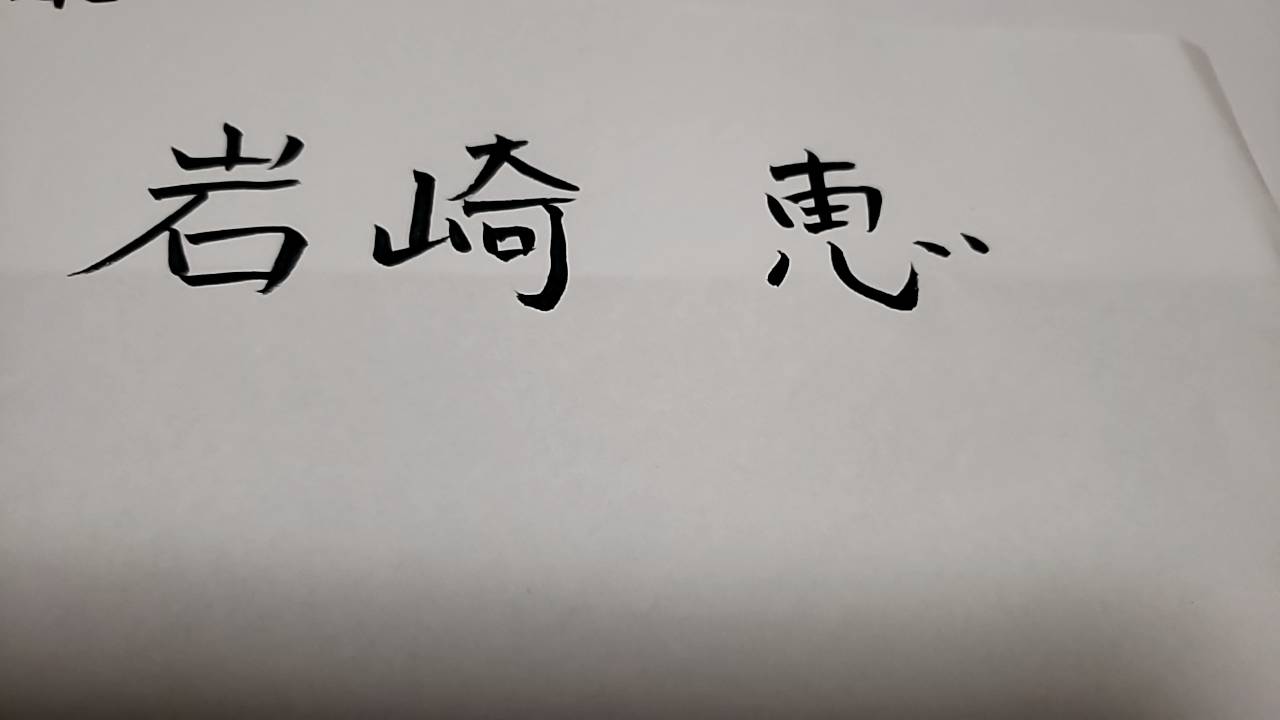 岩崎 恵